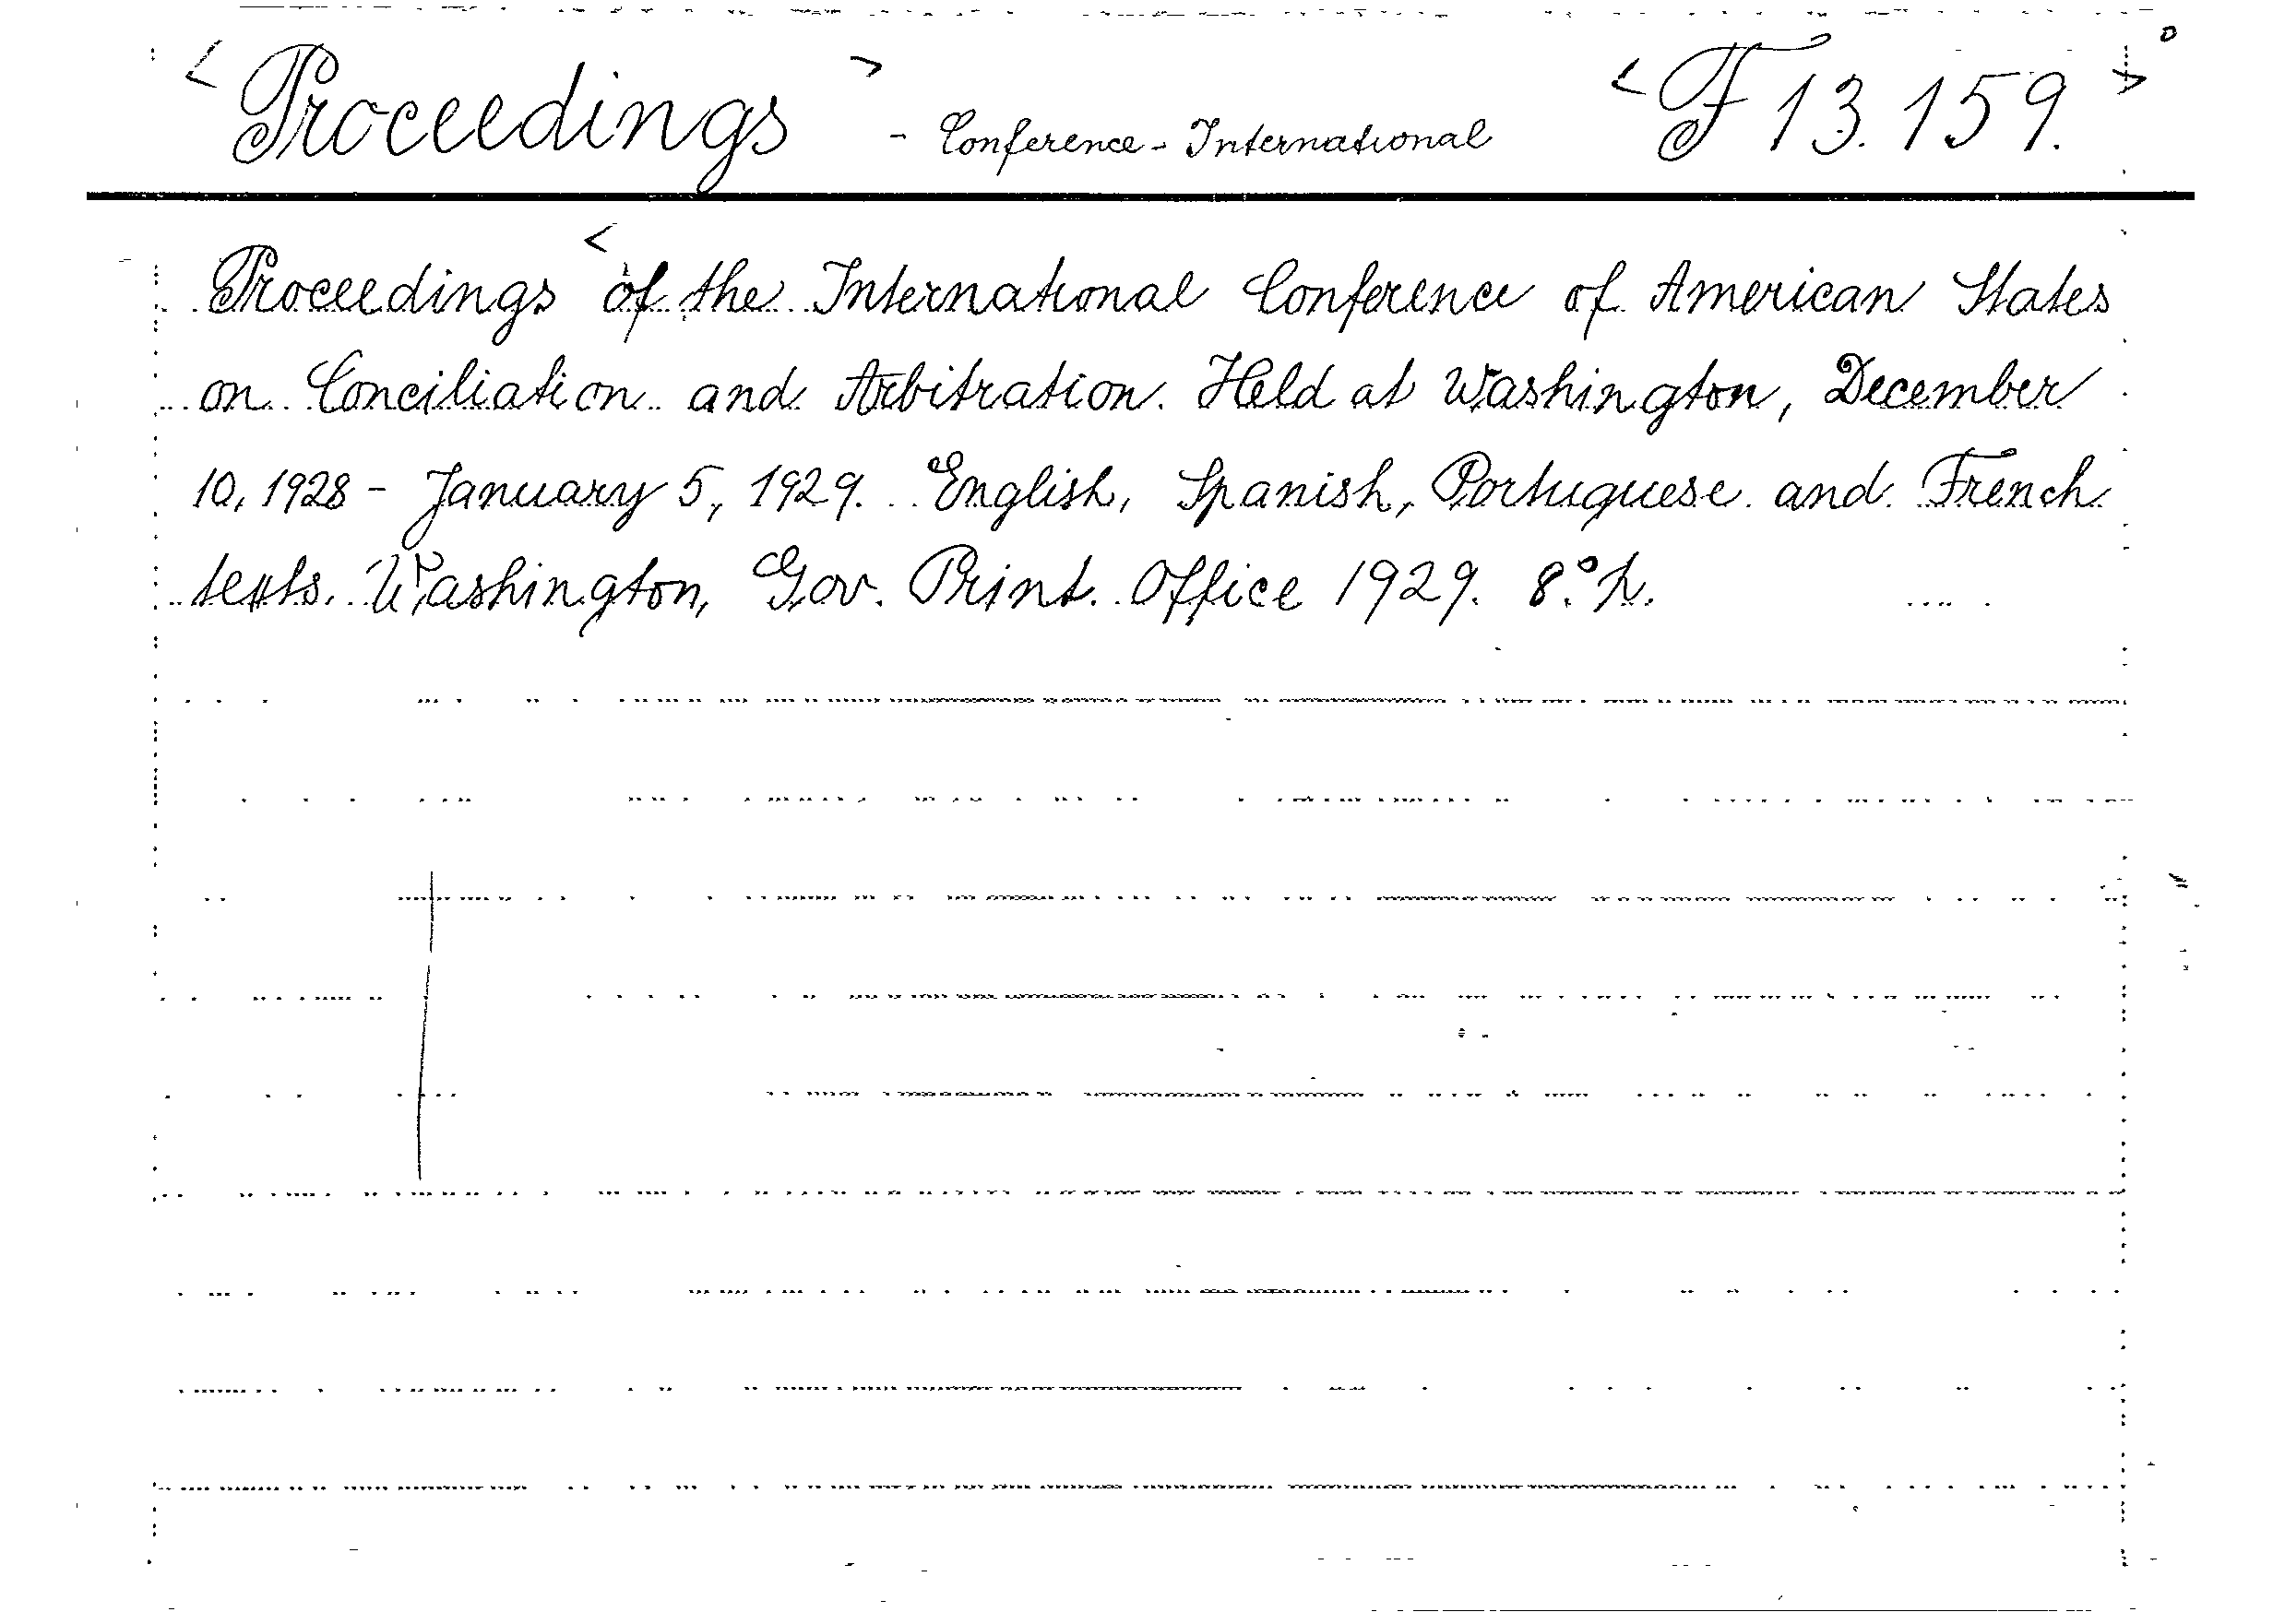 < Proceedings > - Conference - International < F 13.159. >
Proceedings < of the International Conference of American States
on Conciliation and Arbitration. Held at Washington, December
10, 1928 - January 5, 1929. English, Spanish, Portuguese and French
texts. Washington, Gov. Print. Office 1929. 8:°